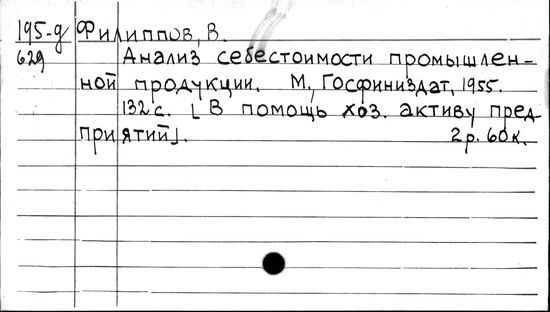 195-д Филиппов, В.
629 Анализ себестоимости промышлен-
ной продукции. М., Госфиниздат, 1955.
132 с. [В помощь хоз. активу пред-
приятий].  2 р. 60 к.